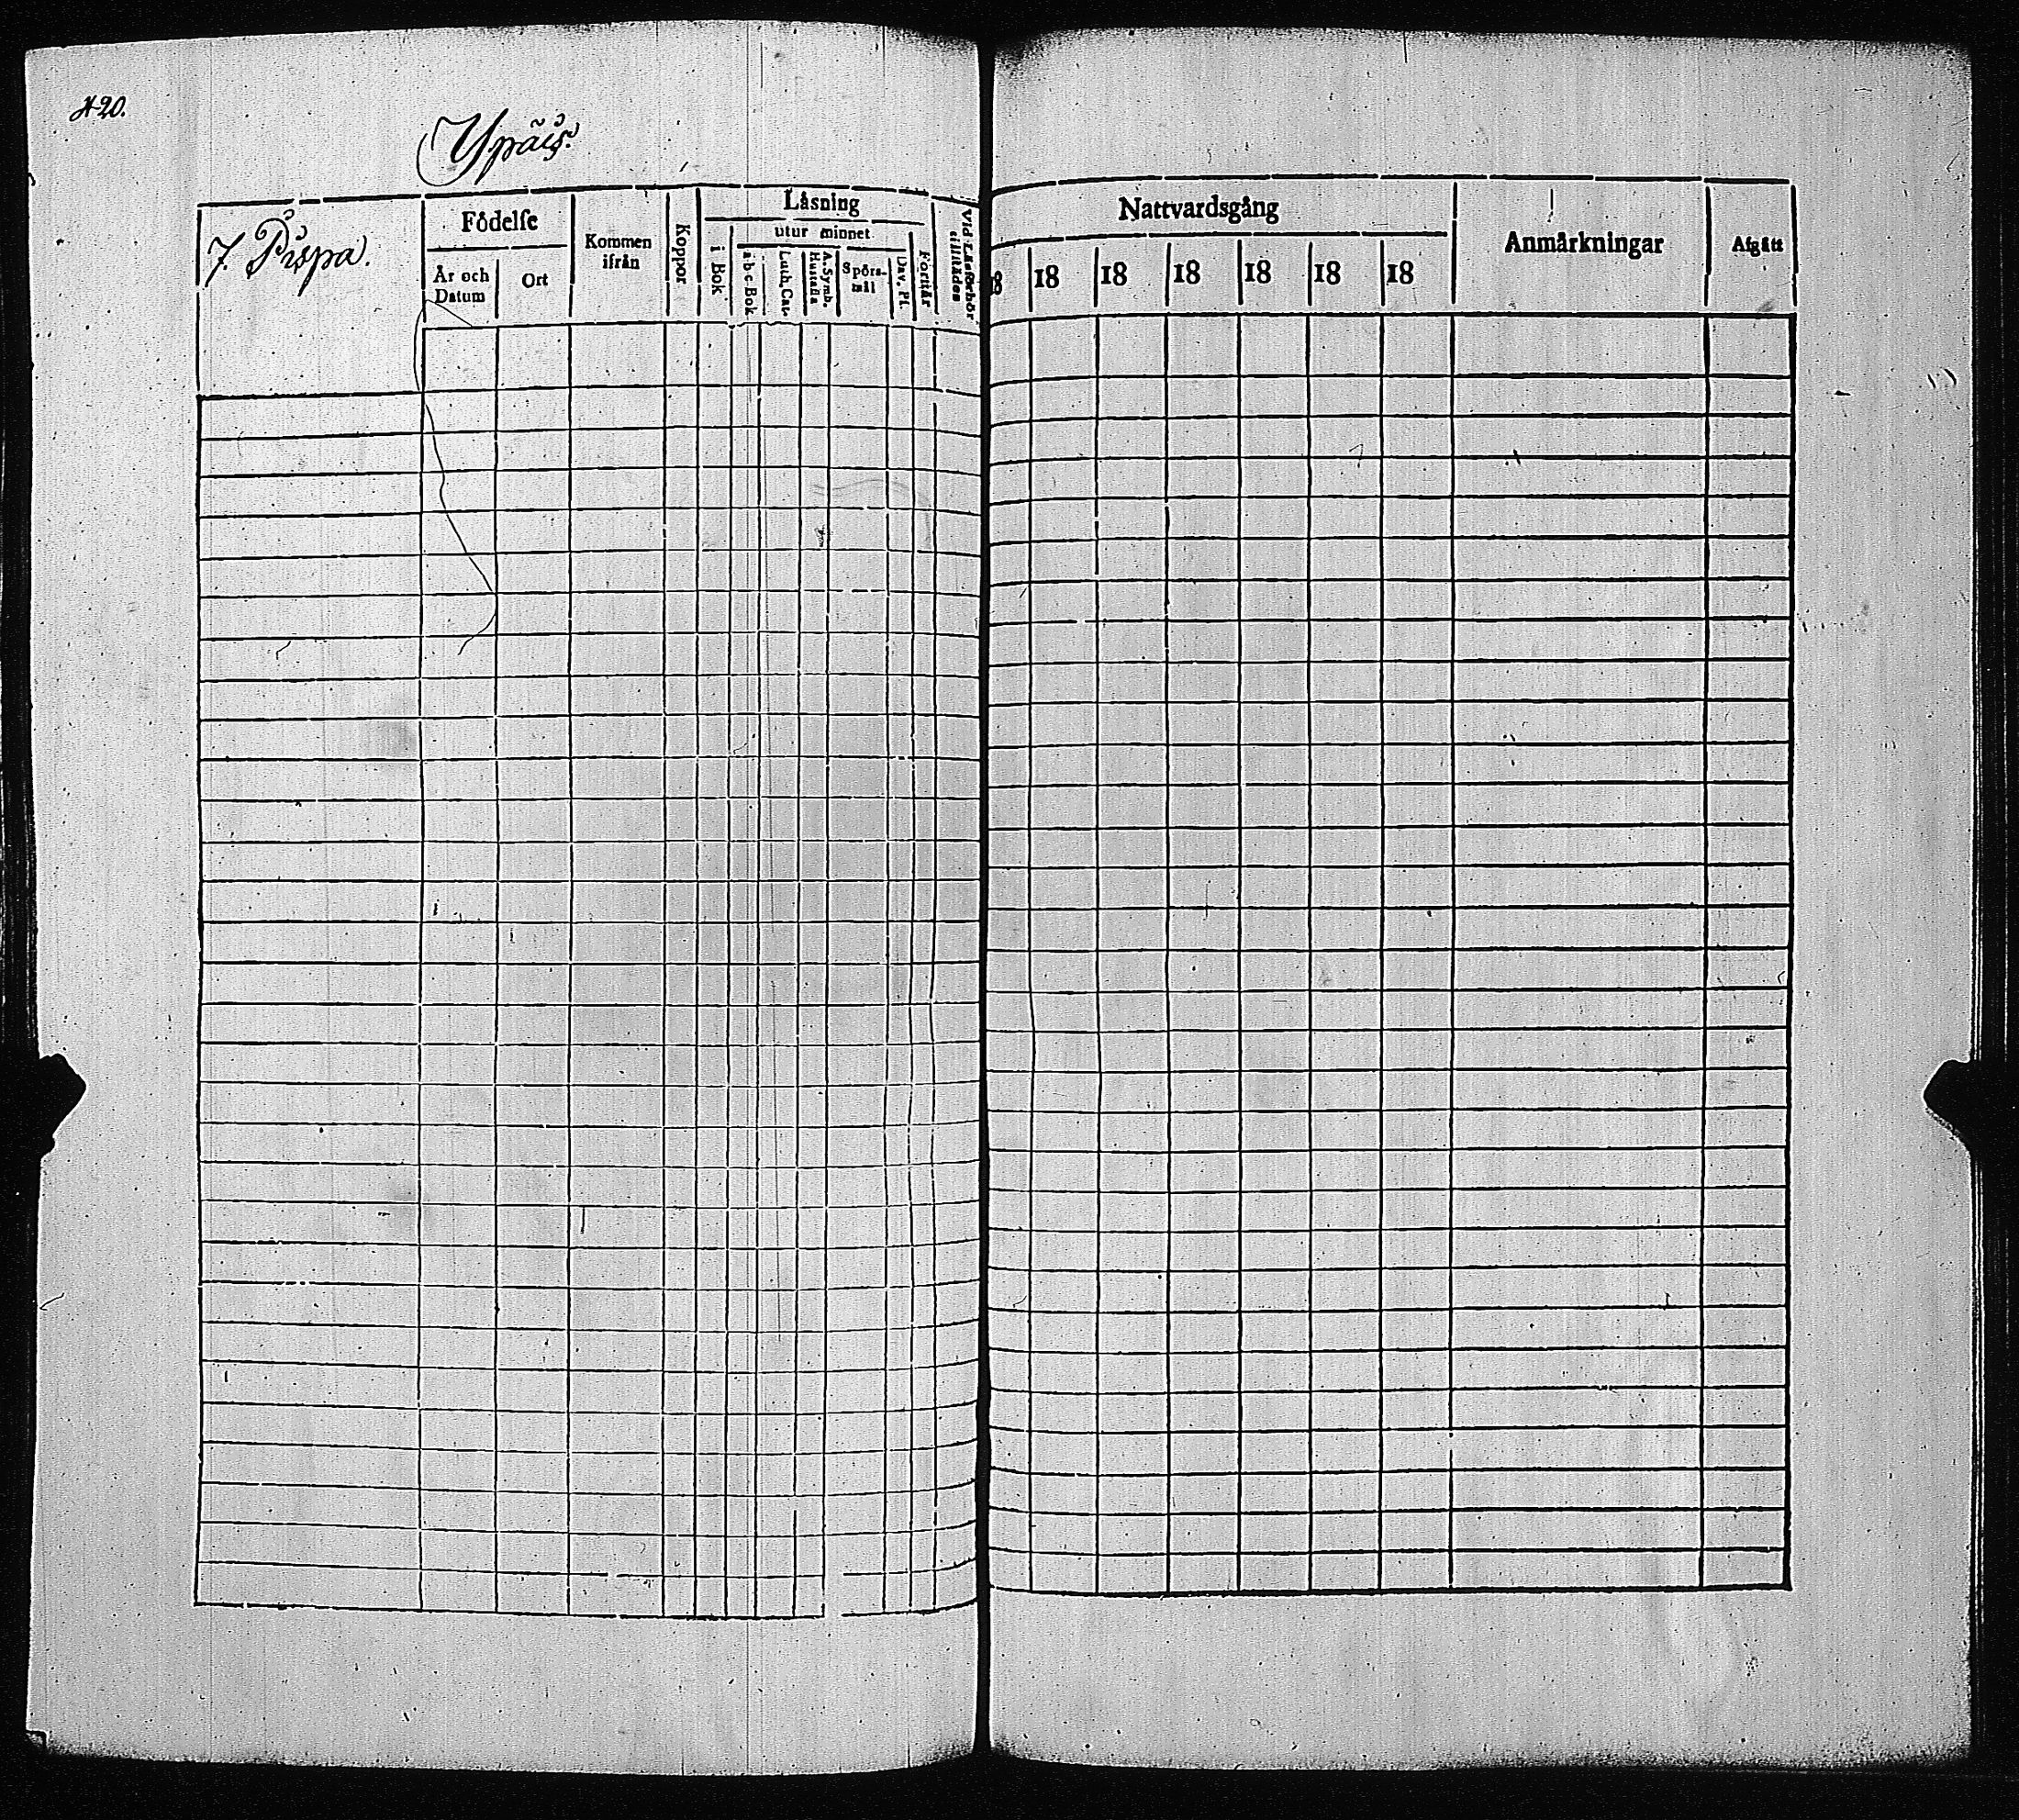 420.
Ypäis.
7. Pispa.
Födelse
År och Datum
Ort
Kommen ifrån
Koppor
Läsning
i Bok
utur minnet
a-b-c-Bok
Luth. Cat.
A. Symb. Hustafla
Spörsmål
Dav. Ps.
Förstår
Vid Läsförhör tillstädes
Nattvardsgång
18 18 18 18 18 18 18
Anmärkningar
Afgått